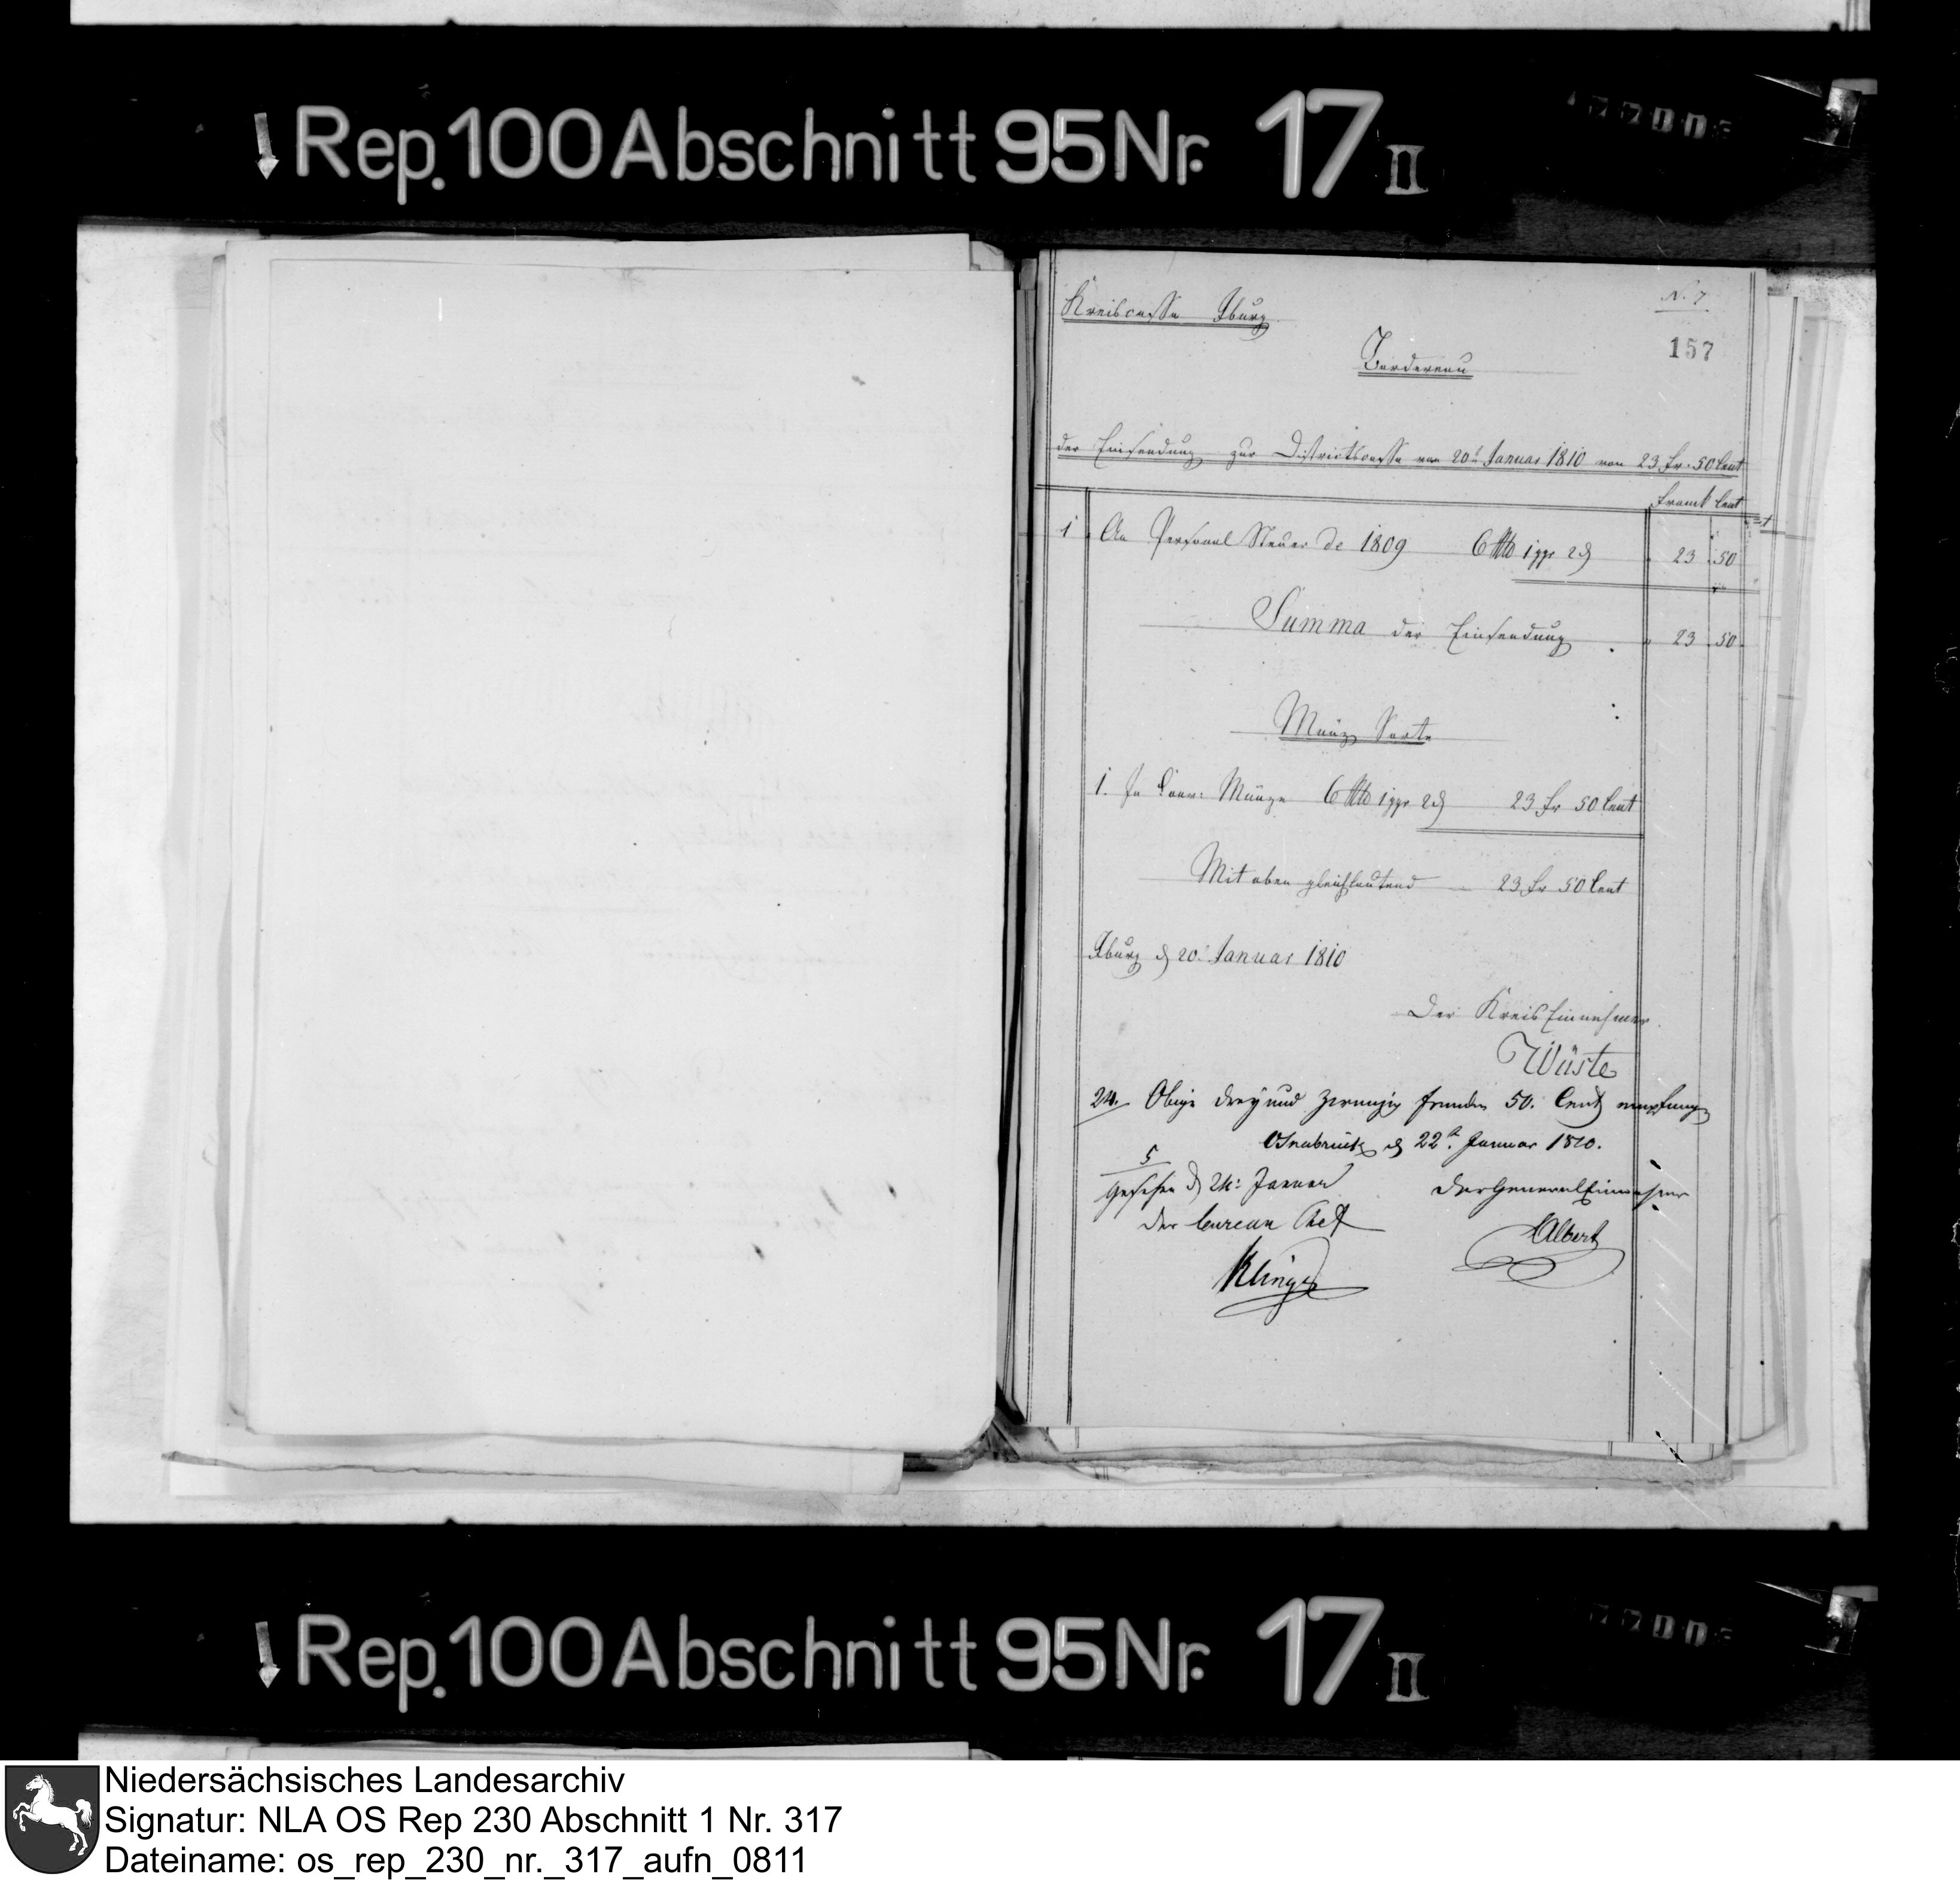 Rep. 100 Abschnitt 95 Nr. 17 II
N. 7
Kreiscasse Iburg
157
Bordereau
der Einsendung zur Districtscasse von 20t Januar 1810 von 23 fr. 50 Cent
Frank Cent
1 An Personal Steuer de 1809 6 rtlr 1 ggr 2 d 23 50
Summa der Einsendung 23 50
Münz Sorte
1. In Conv: Münze 6 rtlr 1 ggr 2 d 23 fr 50 Cent
Mit oben gleichlautend 23 fr 50 Cent
Iburg d 20t Januar 1810
Der Kreis Einnehmer
Wüste
24. Obige drey und zwanzig franken 50. Cent empfangen
Osnabrück d 22t Januar 1810.
5
Gesehen d 24t Januar
Der General Einnehmer
der bureau Chef
Albert
Klinge
Rep. 100 Abschnitt 95 Nr. 17 II
Niedersächsisches Landesarchiv
Signatur: NLA OS Rep 230 Abschnitt 1 Nr. 317
Dateiname: os_rep_230_nr._317_aufn_0811